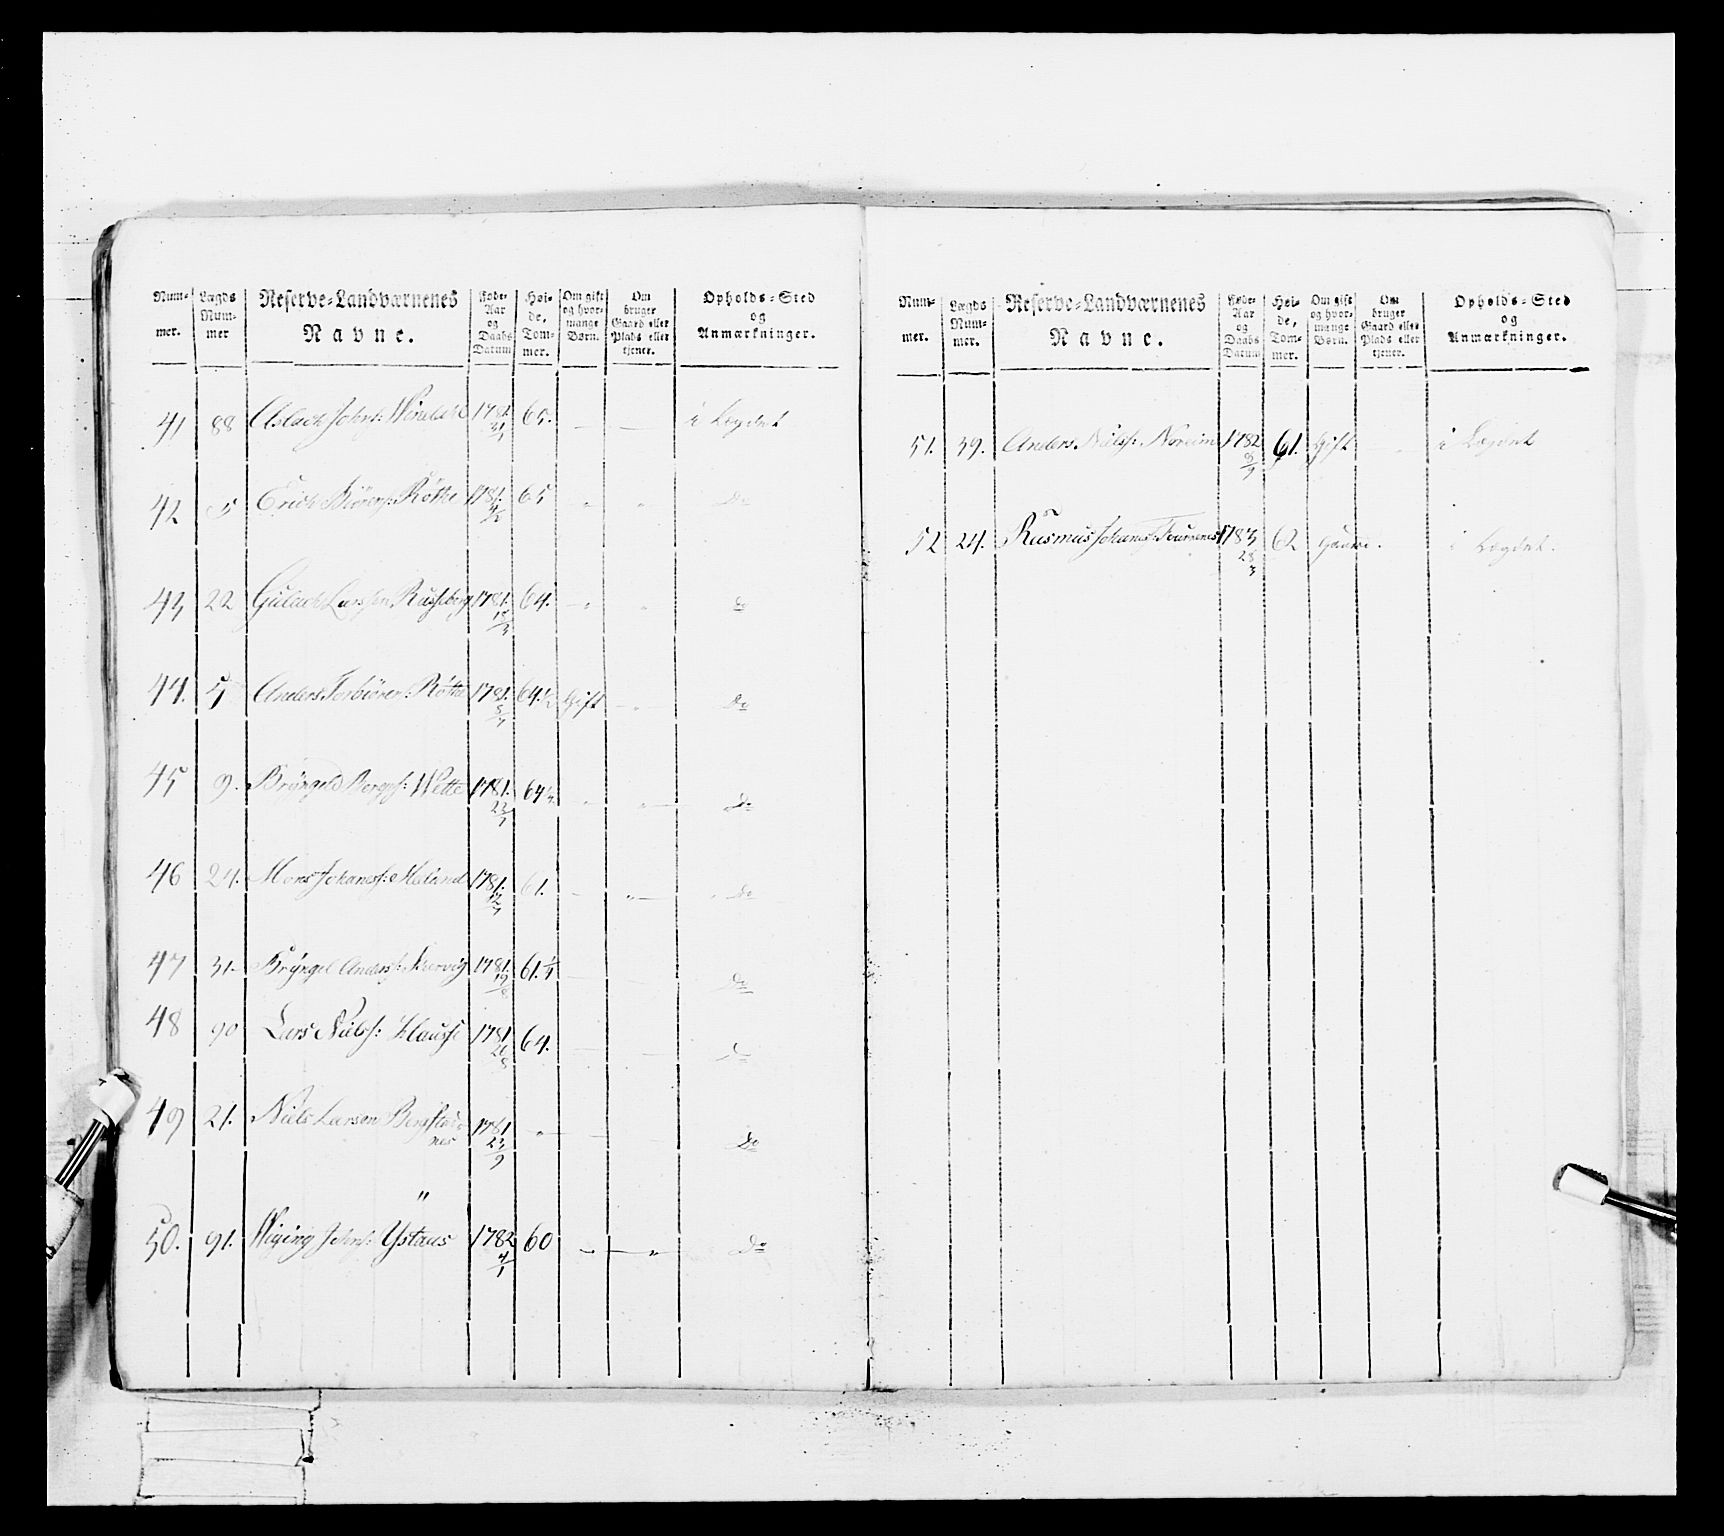 Num-mer. Lægds Num-mer Reserve-Landværnenes Navne. Føde-Aar og Daabs Datum Høi-de, Tom-mer. Om gift og hvor-mange Børn. Om bruger Gaard eller Plads eller tjener. Opholds-Sted og Anmærkninger.
41 88 Aslack Johns: 1781 65. — — i Lægdet
42 5 Erick Røthe 1781. 65 " " Do
43 22 Gulack Larssen 1781. 64. " " Do
44. 5 Anders Torbiörens: Røthe 1781. 64½ Gift " Do
45 9. Bryngeld Wette 1781. 22/7 64¼ " " Do
46 24. Mons Johaness: Meland 1781. 61. — " Do
47 31. Bryngel Anders: 1781. 61.¼ — — Do
48 90 Lars Niels: 1781 64. — — Do
49 21. Niels Larsen 1781 23/9 " — Do
50. 91. Johns: Ystaas 1782 4/1 60 " " Do
Num-mer. Lægds Num-mer. Reserve-Landværnenes Navne. Føde-Aar og Daabs Datum Høi-de, Tom-mer. Om gift og hvor-mange Børn. Om bruger Gaard eller Plads eller tjener. Opholds-Sted og Anmærkninger.
51. 39. Anders Niels: Noreim 1782 61. Gift — i Lægdet
52 24. Rasmus Johans: 1783 28/3 62 i Lægdet.